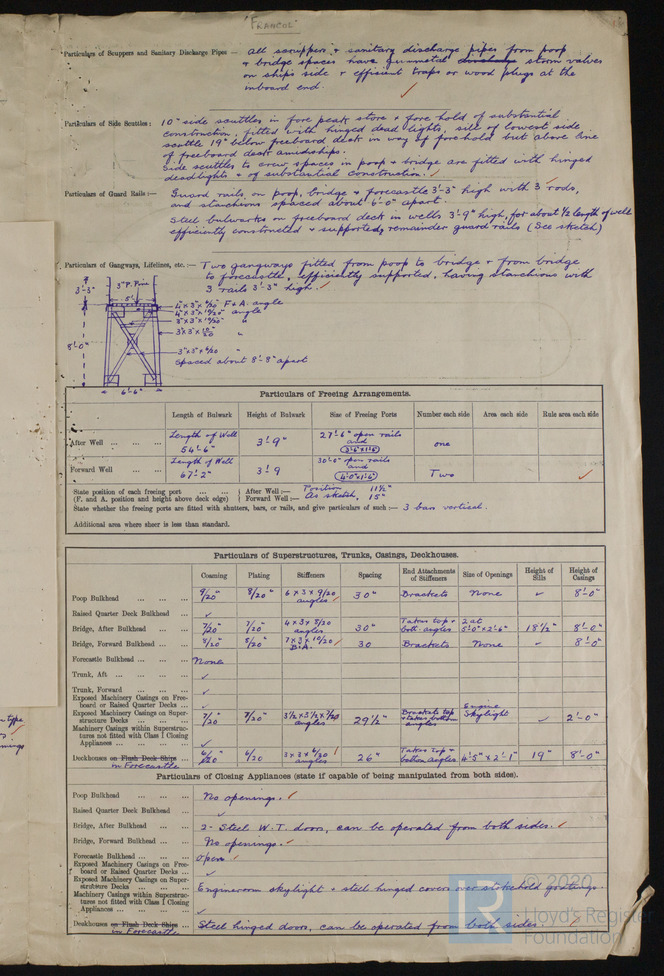 "FRANCOL"
Particulars of Scuppers and Sanitary Discharge Pipes — All scuppers & sanitary discharge pipes from poop
& bridge spaces have gunmetal discharge storm valves
on ships side & efficient traps or wood plugs at the
inboard end.
Particulars of Side Scuttles: 10" side scuttles in fore peak store & fore hold of substantial
construction, fitted with hinged dead lights, sill of lowest side
scuttle 19" below freeboard deck in way of forehold but above line
of freeboard deck amidships.
Side scuttles to crew spaces in poop & bridge are fitted with hinged
deadlights & of substantial construction.
Particulars of Guard Rails:— Guard rails on poop, bridge & forecastle 3'-3" high with 3 rods,
and stanchions spaced about 6'-0" apart.
Steel bulwarks on freeboard deck in wells 3'-9" high, for about 1/2 length of well
efficiently constructed & supported, remainder guard rails (See sketch)
Particulars of Gangways, Lifelines, etc.:— Two gangways fitted from poop to bridge & from bridge
to forecastle, efficiently supported, having stanchions with
3 rails 3'-3" high.
3'-3"
3" P. Pine
5'
4" x 3" x 9/20 F & A. angle
4" x 3" x 10/20" angle
3" x 3" x 10/20 "
3" x 3" x 10/20 "
3" x 3" x 6/20 "
Spaced about 8'-8" apart
8'-0"
6'-6"
Particulars of Freeing Arrangements.
Length of Bulwark Height of Bulwark Size of Freeing Ports Number each side Area each side Rule area each side
After Well ... ... ... Length of Well 54'-6" 3'9" 27'-6" open rails and (3'-6" x 1'-6") one
Forward Well ... ... Length of Well 67'-2" 3'9 30'-0" open rails and (4'-0" x 1'-6") Two
State position of each freeing port ... ... After Well:— Position 11 1/2"
(F. and A. position and height above deck edge) Forward Well:— As sketch, 15"
State whether the freeing ports are fitted with shutters, bars, or rails, and give particulars of such:— 3 bars vertical.
Additional area where sheer is less than standard.
Particulars of Superstructures, Trunks, Casings, Deckhouses.
Coaming Plating Stiffeners Spacing End Attachments of Stiffeners Size of Openings Height of Sills Height of Casings
Poop Bulkhead ... ... ... 9/20" 8/20" 6 x 3 x 9/20 angles 30" Brackets None 8'-0"
Raised Quarter Deck Bulkhead ...
Bridge, After Bulkhead ... ... 7/20" 7/20" 4 x 3 x 8/20 angles 30" Takes top & bott. angles 2 at 5'-0" x 2'-6" 18 1/2" 8'-0"
Bridge, Forward Bulkhead ... ... 8/20" 8/20" 7 x 3 x 10/20 B.A. 30 Brackets None 8'-0"
Forecastle Bulkhead ... ... ... None
Trunk, Aft ... ... ...
Trunk, Forward ... ... ...
Exposed Machinery Casings on Free-
board or Raised Quarter Decks ...
Exposed Machinery Casings on Super-
structure Decks ... ... ... 7/20" 7/20" 3 1/2 x 3 1/2 x 7/20 angles 29 1/2" Brackets top & takes bottom angles Engine Skylight 2'-0"
Machinery Casings within Superstruc-
tures not fitted with Class I Closing
Appliances ... ... ...
Deckhouses on Flush Deck Ships ... in Forecastle 6/20 6/20 3 x 3 x 6/20 angles 26" Takes top & bottom angles 4'-5" x 2'-1" 19" 8'-0"
Particulars of Closing Appliances (state if capable of being manipulated from both sides).
Poop Bulkhead ... ... ... No openings.
Raised Quarter Deck Bulkhead ...
Bridge, After Bulkhead ... ... 2 - Steel W.T. doors, can be operated from both sides.
Bridge, Forward Bulkhead ... ... No openings.
Forecastle Bulkhead ... ... ... Open.
Exposed Machinery Casings on Free-
board or Raised Quarter Decks ...
Exposed Machinery Casings on Super-
structure Decks ... ... ... Engineroom skylight & steel hinged covers over stokehold gratings.
Machinery Casings within Superstruc-
tures not fitted with Class I Closing
Appliances ... ... ...
Deckhouses on Flush Deck Ships ... in Forecastle Steel hinged doors, can be operated from both sides.
© 2020
LR
Lloyd's Register
Foundation